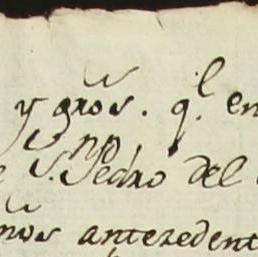 y gros. q.l en
S.n Pedro del
antezedent